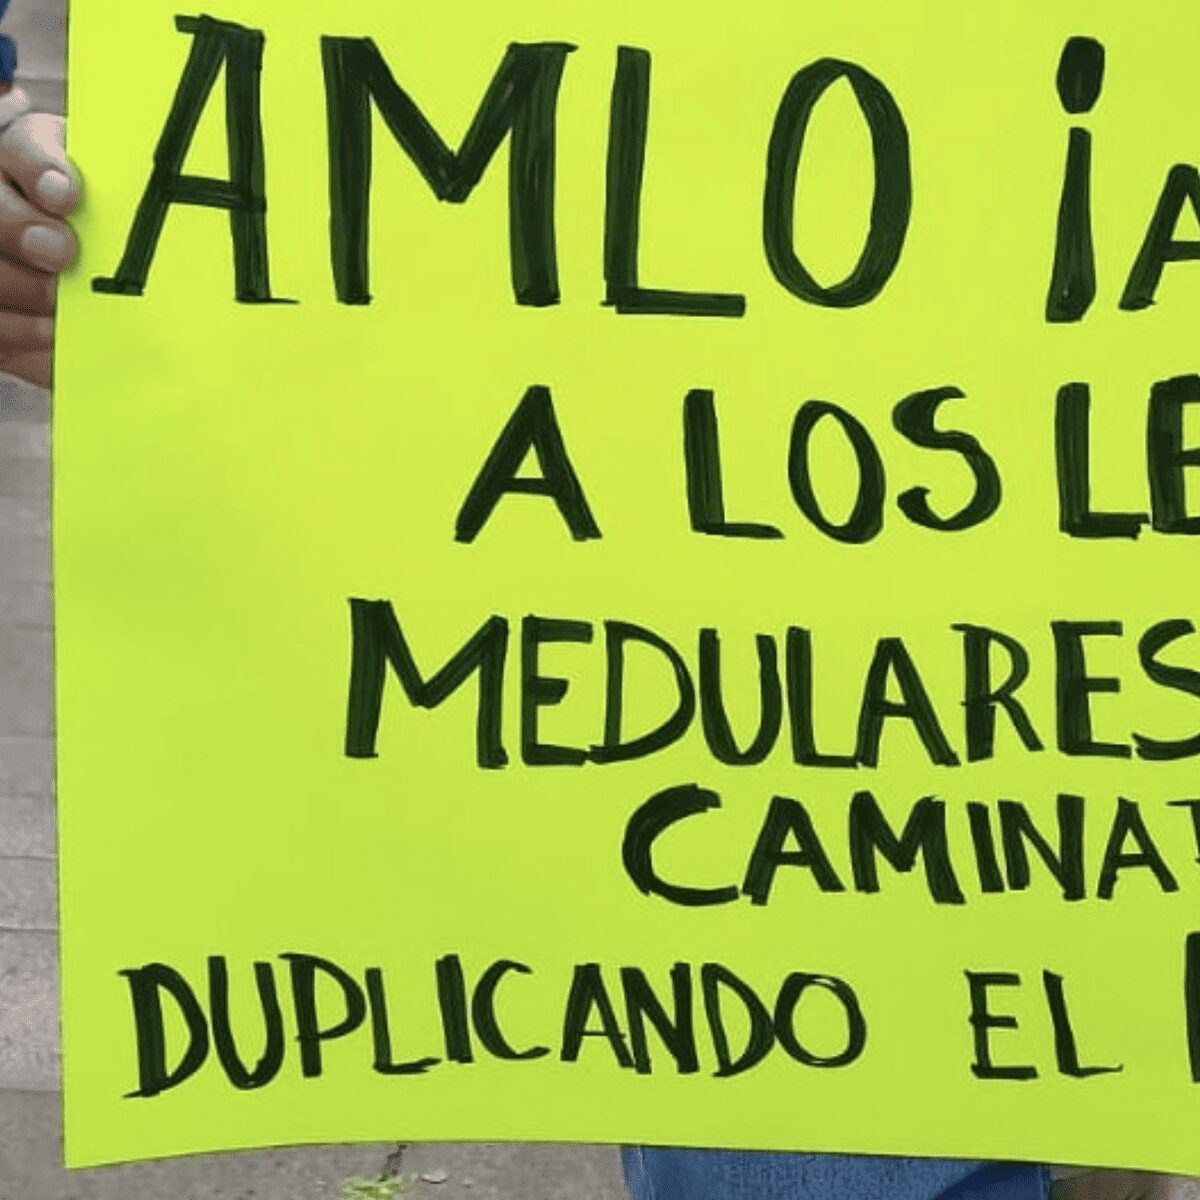 AMLO ¡A
A LOS LE
MEDULARES
CAMINA
DUPLICANDO EL